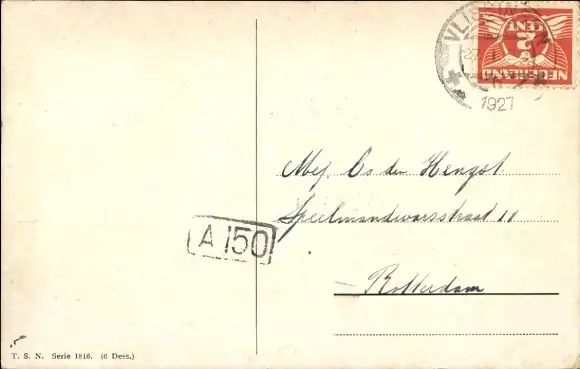 VLISSINGEN
1927
2 CENT
NEDERLAND
Mej. Co den Hengst
Speelmandwarsstraat 18
A 150
Rotterdam
T. S. N. Serie 1816. (6 Dess.)